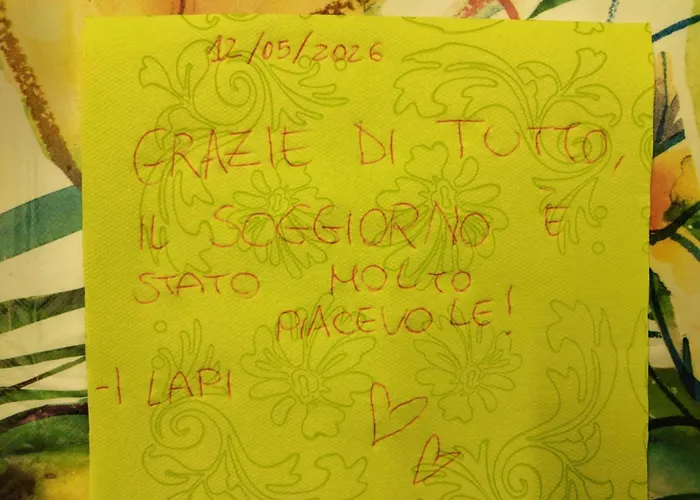 12/05/2026
GRAZIE DI TUTTO,
IL SOGGIORNO È
STATO MOLTO
PIACEVOLE!
-I LAPI